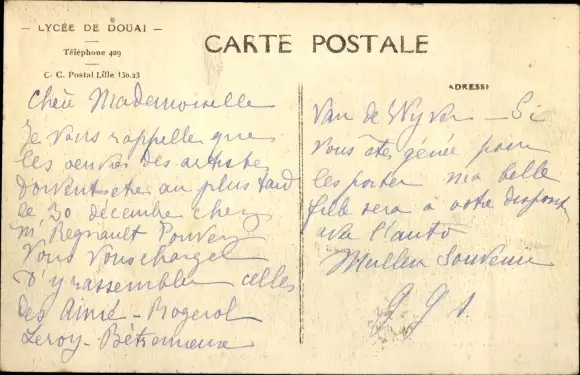 — LYCÉE DE DOUAI —
Téléphone 409
C. C. Postal Lille 130.23
CARTE POSTALE
ADRESSE
Chère Mademoiselle
Je vous rappelle que
les oeuvres des artistes
doivent être au plus tard
le 30 décembre chez
M. Regnault
Vous vous chargez
d'y rassembler celles
des Aimé - Rogerol
Leroy - Bétremieux
Van de Wyver - Si
vous êtes gênée pour
les porter ma belle
fille sera à votre dispont
avec l'auto
Meilleur Souvenir